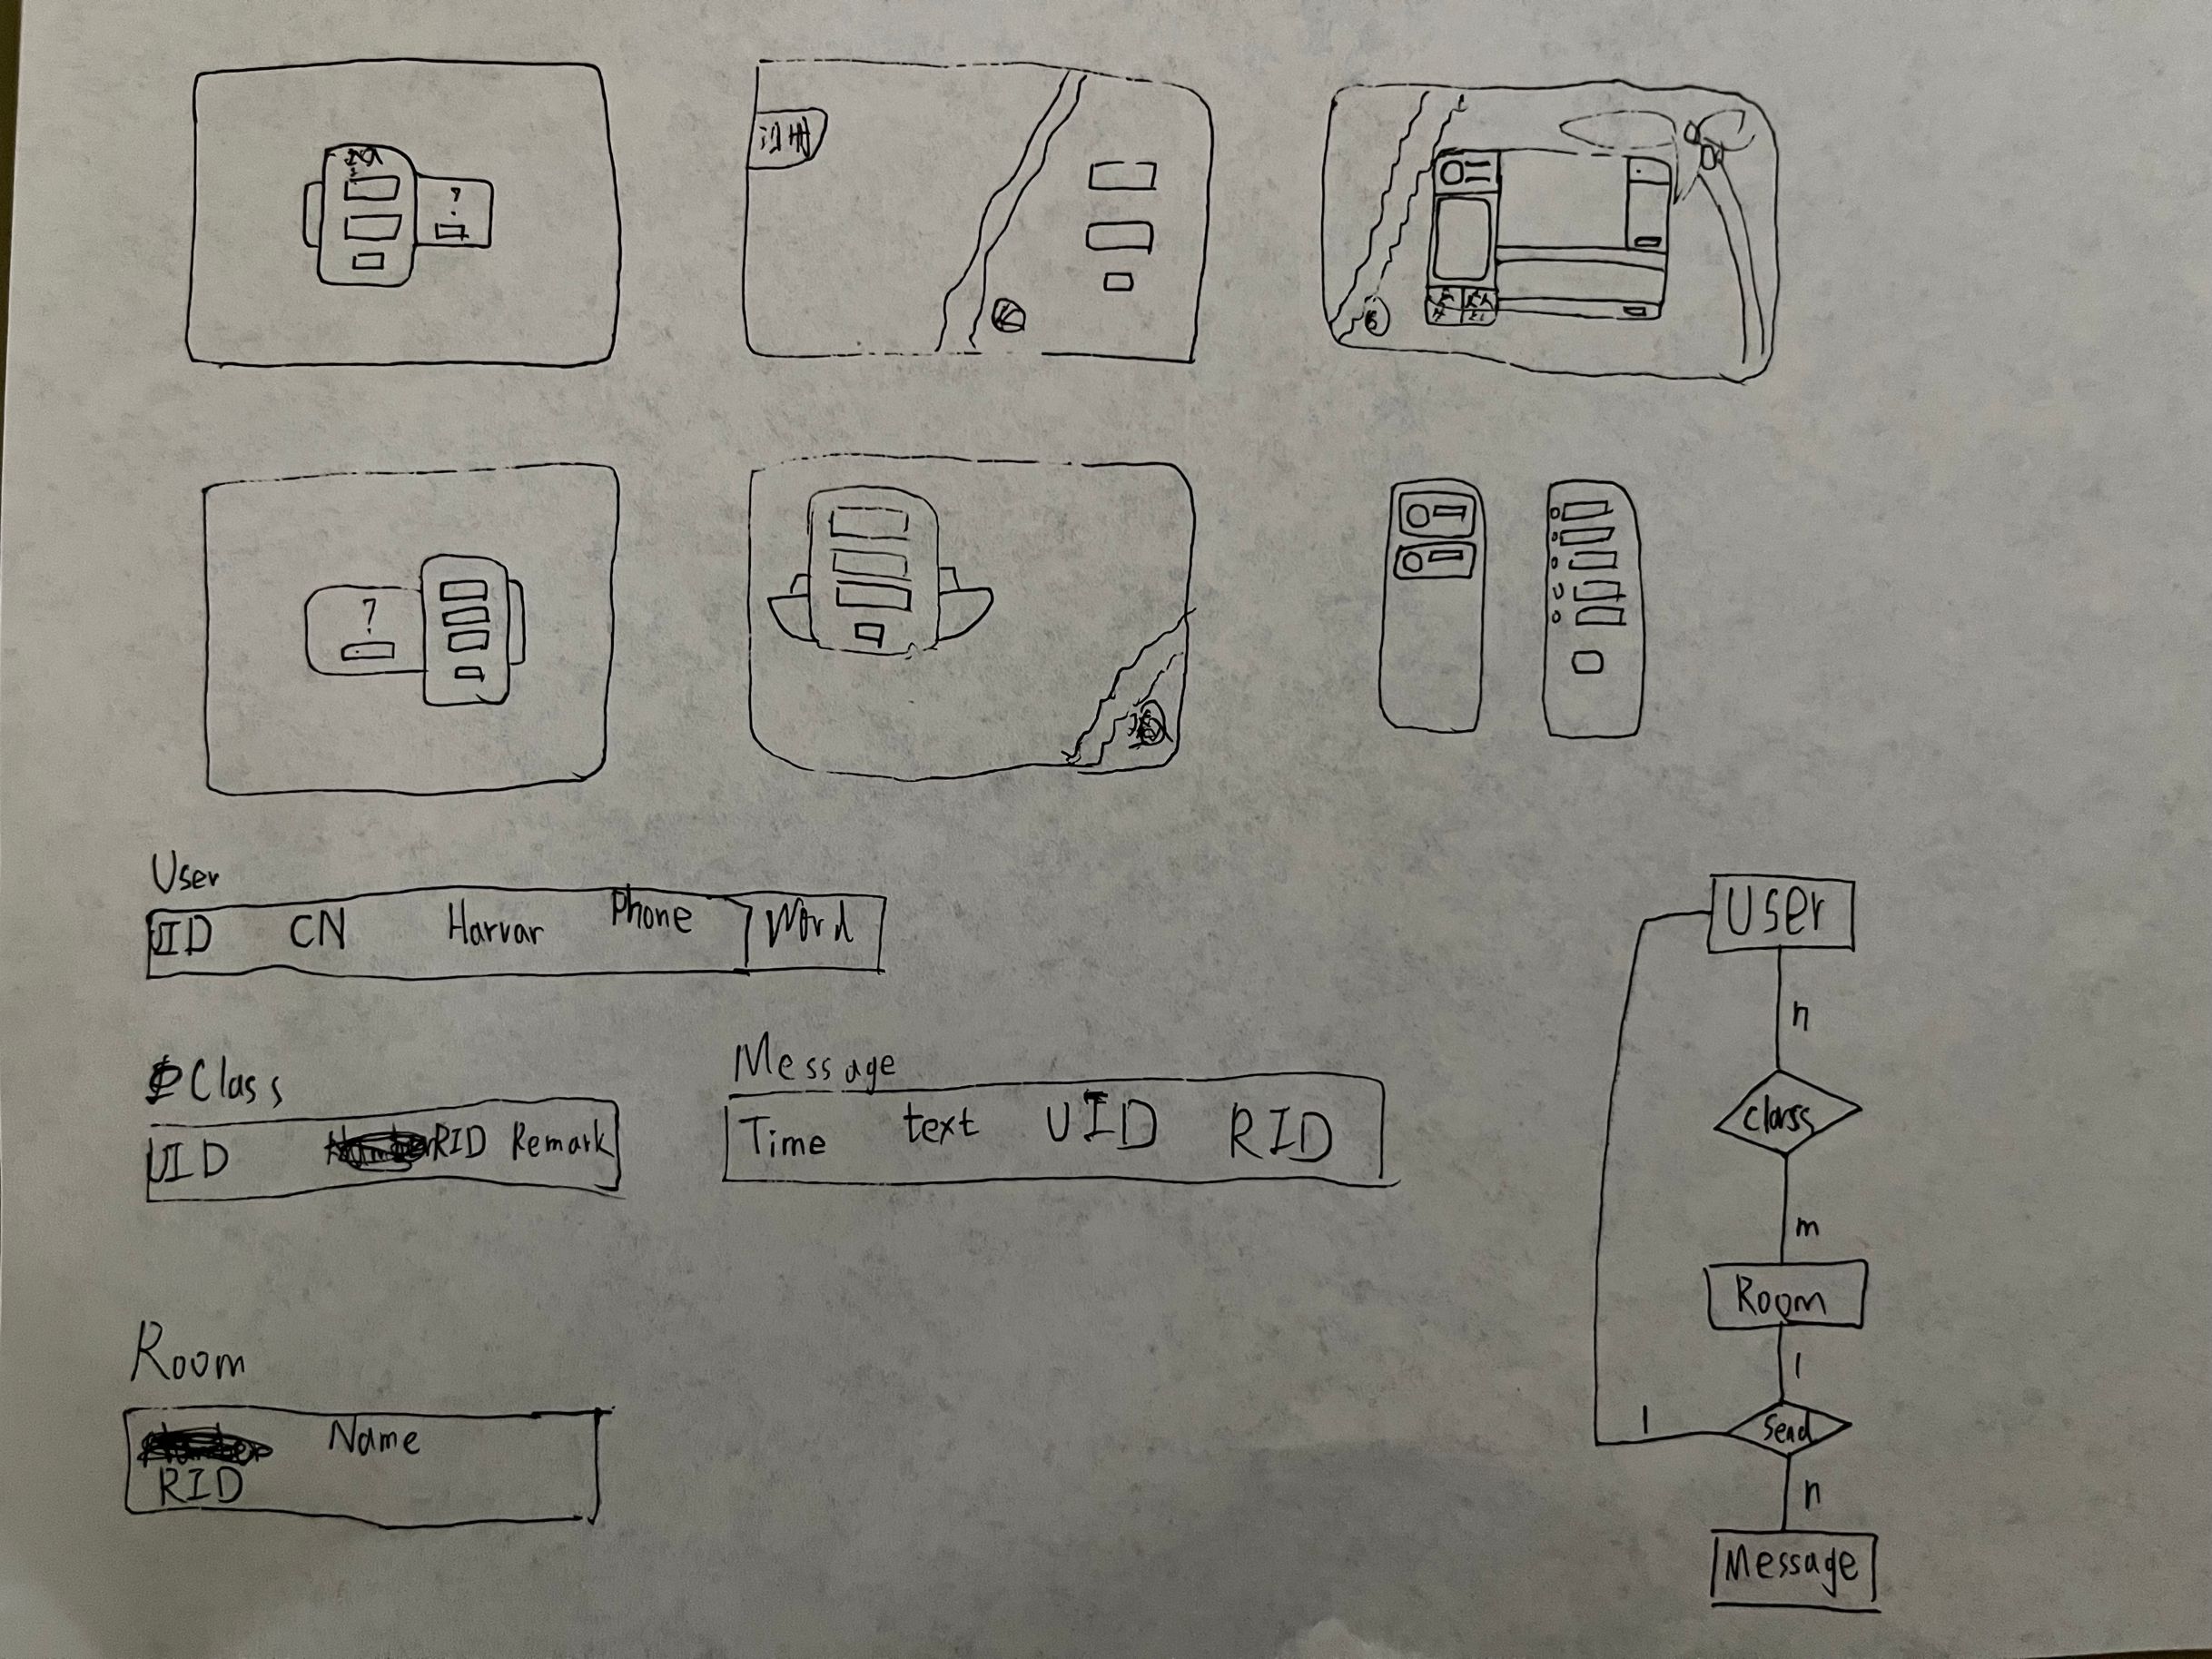 注册
?
?
User
UID CN Harvar Phone Word
Class
UID RID Remark
Message
Time text UID RID
Room
Name
RID
User
n
Class
m
Room
1
1
Send
n
Message